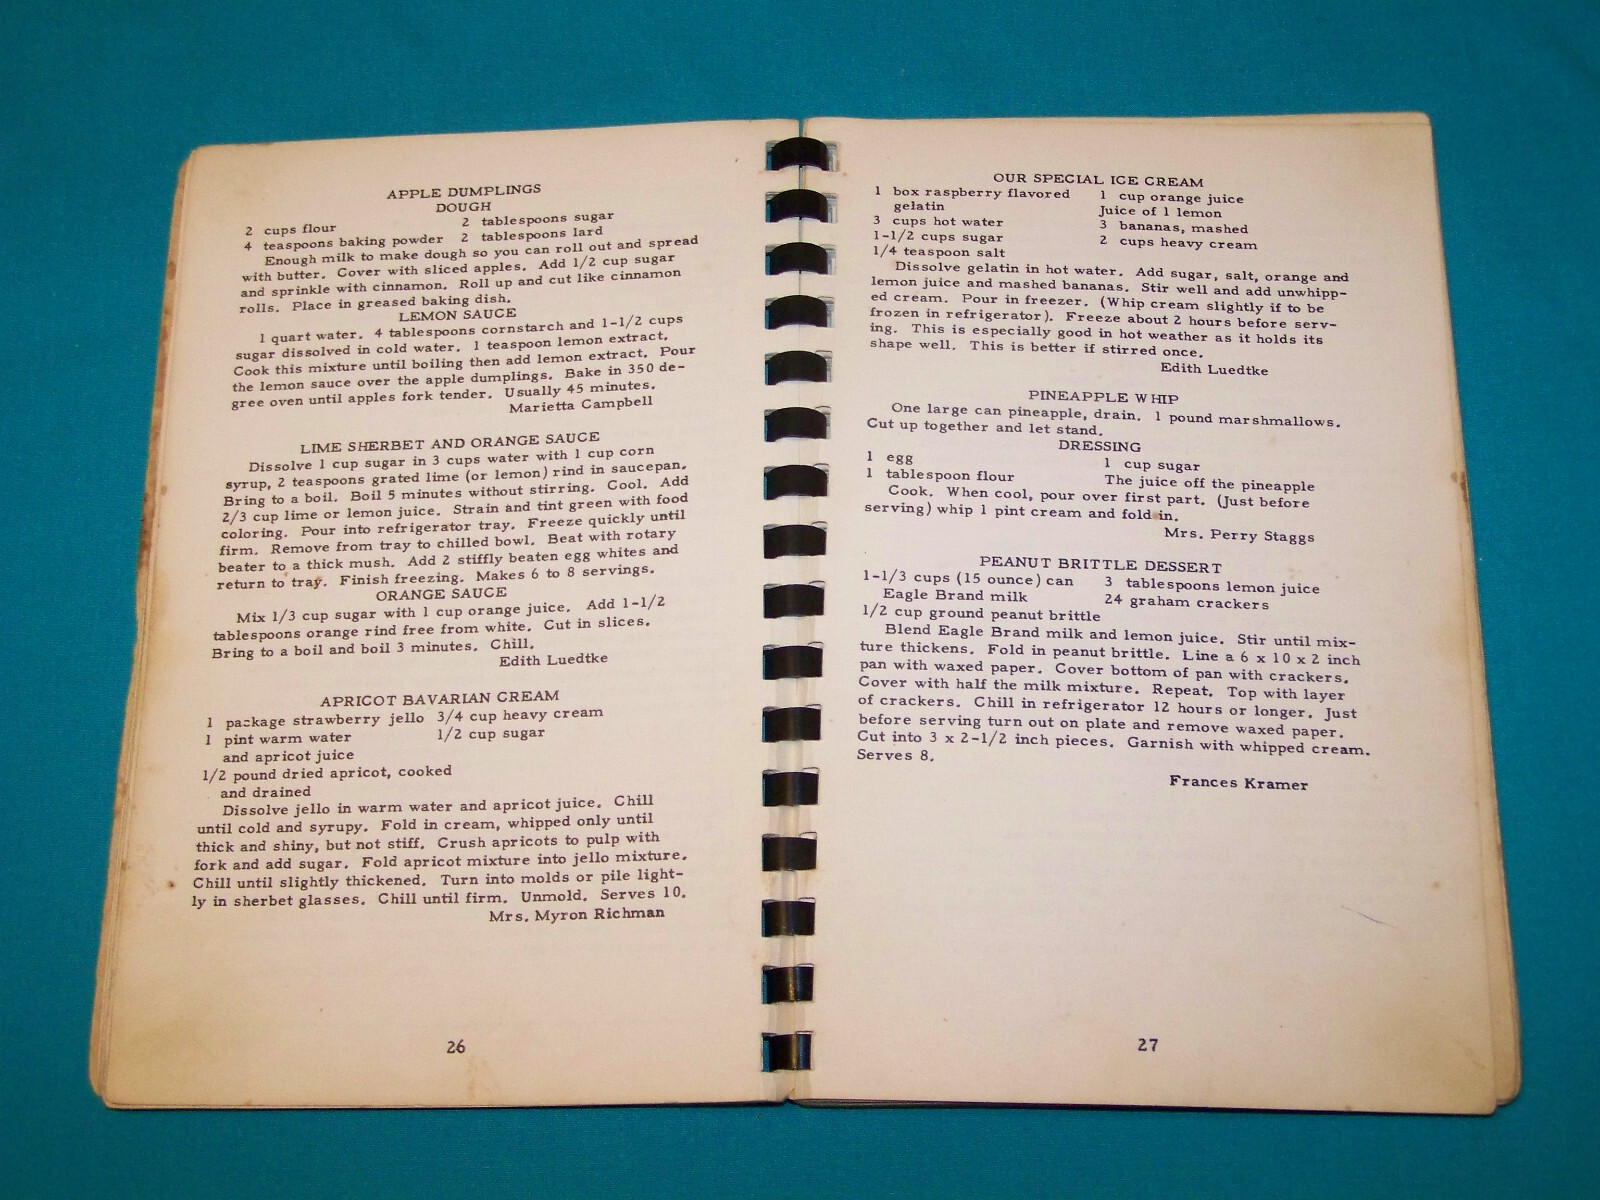 APPLE DUMPLINGS
DOUGH
2 cups flour 2 tablespoons sugar
4 teaspoons baking powder 2 tablespoons lard
Enough milk to make dough so you can roll out and spread
with butter. Cover with sliced apples. Add 1/2 cup sugar
and sprinkle with cinnamon. Roll up and cut like cinnamon
rolls. Place in greased baking dish.
LEMON SAUCE
1 quart water. 4 tablespoons cornstarch and 1-1/2 cups
sugar dissolved in cold water. 1 teaspoon lemon extract.
Cook this mixture until boiling then add lemon extract. Pour
the lemon sauce over the apple dumplings. Bake in 350 de-
gree oven until apples fork tender. Usually 45 minutes.
Marietta Campbell
LIME SHERBET AND ORANGE SAUCE
Dissolve 1 cup sugar in 3 cups water with 1 cup corn
syrup, 2 teaspoons grated lime (or lemon) rind in saucepan.
Bring to a boil. Boil 5 minutes without stirring. Cool. Add
2/3 cup lime or lemon juice. Strain and tint green with food
coloring. Pour into refrigerator tray. Freeze quickly until
firm. Remove from tray to chilled bowl. Beat with rotary
beater to a thick mush. Add 2 stiffly beaten egg whites and
return to tray. Finish freezing. Makes 6 to 8 servings.
ORANGE SAUCE
Mix 1/3 cup sugar with 1 cup orange juice. Add 1-1/2
tablespoons orange rind free from white. Cut in slices.
Bring to a boil and boil 3 minutes. Chill.
Edith Luedtke
APRICOT BAVARIAN CREAM
1 package strawberry jello 3/4 cup heavy cream
1 pint warm water 1/2 cup sugar
and apricot juice
1/2 pound dried apricot, cooked
and drained
Dissolve jello in warm water and apricot juice. Chill
until cold and syrupy. Fold in cream, whipped only until
thick and shiny, but not stiff. Crush apricots to pulp with
fork and add sugar. Fold apricot mixture into jello mixture.
Chill until slightly thickened. Turn into molds or pile light-
ly in sherbet glasses. Chill until firm. Unmold. Serves 10.
Mrs. Myron Richman
26
OUR SPECIAL ICE CREAM
1 box raspberry flavored 1 cup orange juice
gelatin Juice of 1 lemon
3 cups hot water 3 bananas, mashed
1-1/2 cups sugar 2 cups heavy cream
1/4 teaspoon salt
Dissolve gelatin in hot water. Add sugar, salt, orange and
lemon juice and mashed bananas. Stir well and add unwhipp-
ed cream. Pour in freezer. (Whip cream slightly if to be
frozen in refrigerator). Freeze about 2 hours before serv-
ing. This is especially good in hot weather as it holds its
shape well. This is better if stirred once.
Edith Luedtke
PINEAPPLE WHIP
One large can pineapple, drain. 1 pound marshmallows.
Cut up together and let stand.
DRESSING
1 egg 1 cup sugar
1 tablespoon flour The juice off the pineapple
Cook. When cool, pour over first part. (Just before
serving) whip 1 pint cream and fold in.
Mrs. Perry Staggs
PEANUT BRITTLE DESSERT
1-1/3 cups (15 ounce) can 3 tablespoons lemon juice
Eagle Brand milk 24 graham crackers
1/2 cup ground peanut brittle
Blend Eagle Brand milk and lemon juice. Stir until mix-
ture thickens. Fold in peanut brittle. Line a 6 x 10 x 2 inch
pan with waxed paper. Cover bottom of pan with crackers.
Cover with half the milk mixture. Repeat. Top with layer
of crackers. Chill in refrigerator 12 hours or longer. Just
before serving turn out on plate and remove waxed paper.
Cut into 3 x 2-1/2 inch pieces. Garnish with whipped cream.
Serves 8.
Frances Kramer
27